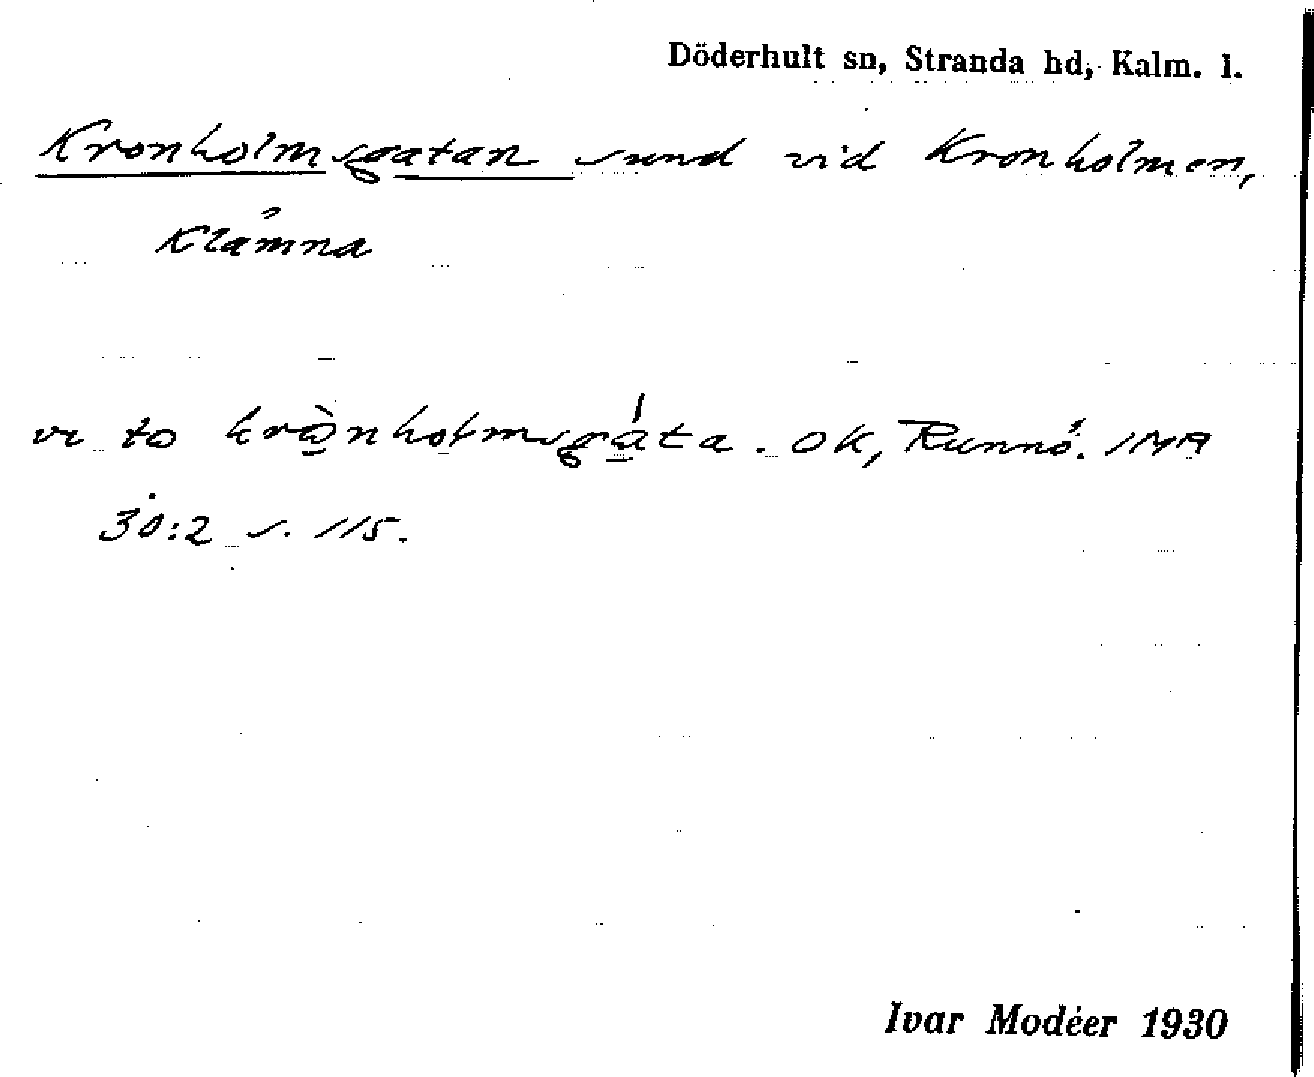 Döderhult sn, Stranda hd, Kalm. l.
Kronholmsgatan sund vid Kronholmen,
Klämna
vr to krònholmsgáta. OK, Runnö. IMA
30:2 s. 115.
Ivar Modéer 1930